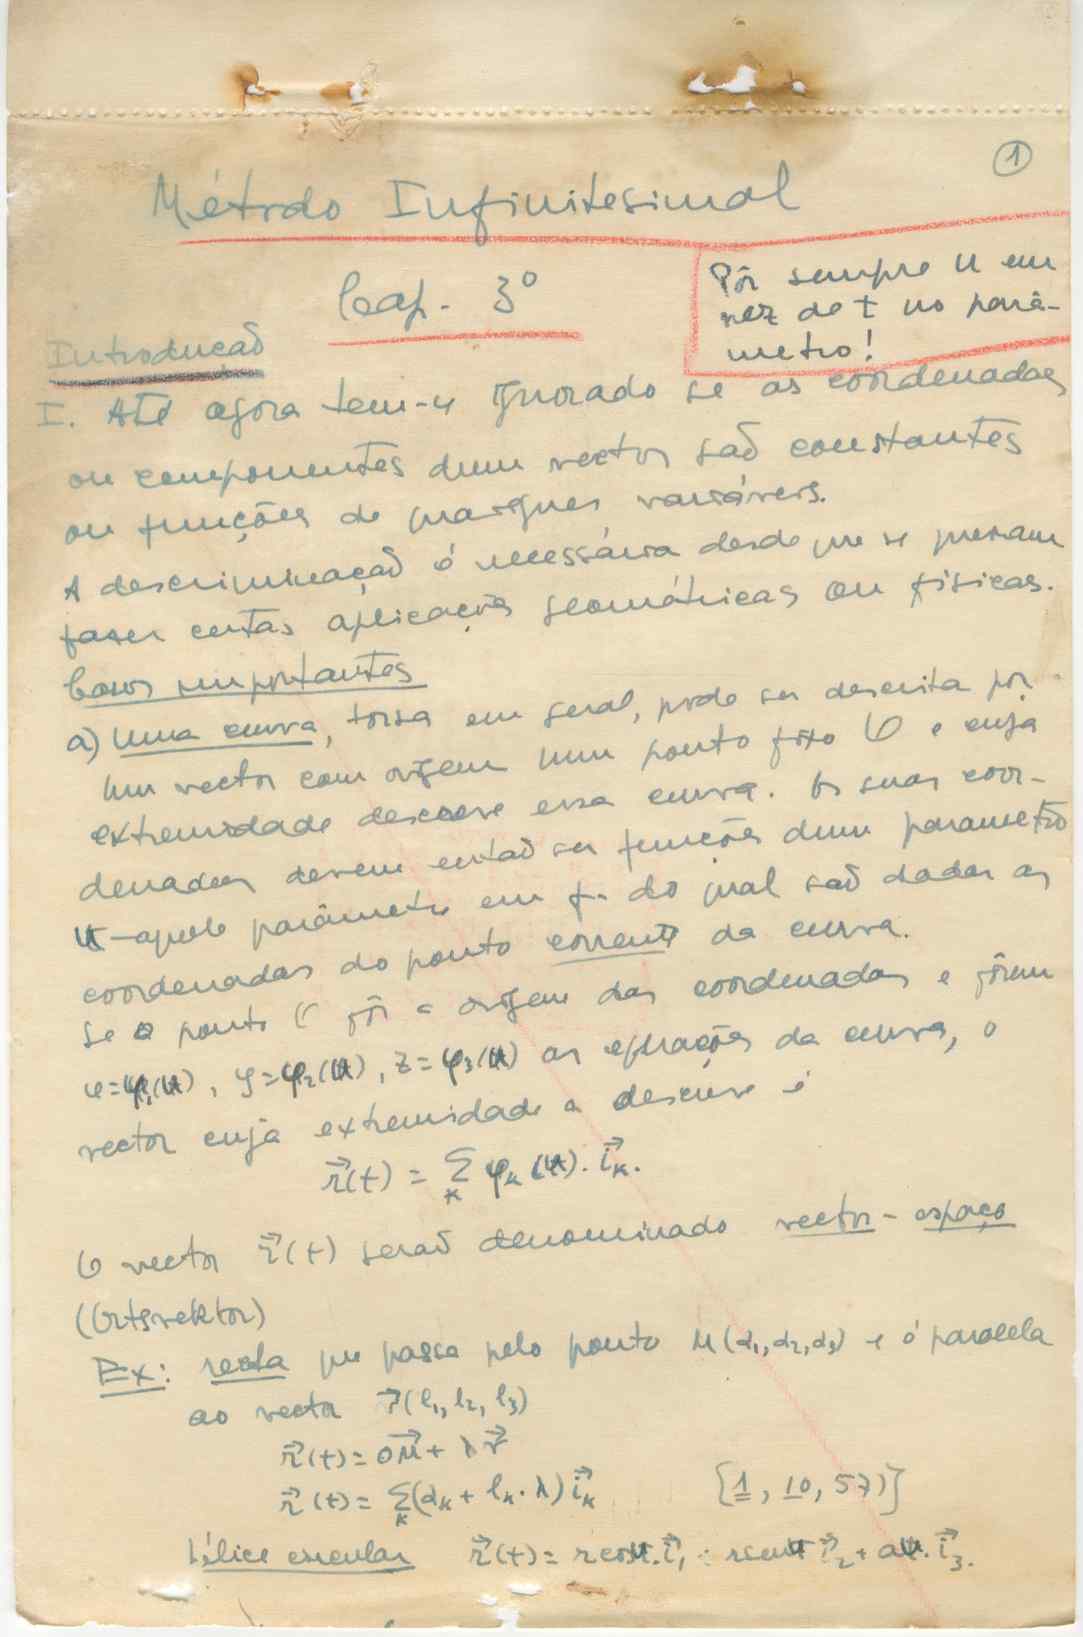 1
Método Infinitesimal
Cap. 3º
Pôr sempre u em
vez de t no parâ-
metro!
Introdução
I. Até agora tem-se ignorado se as coordenadas
ou componentes dum vector são constantes
ou funções de quaisquer variáveis.
A descriminação é necessária desde que se queiram
fazer certas aplicações geométricas ou físicas.
Casos importantes
a) Uma curva, torsa em geral, pode ser descrita por
um vector com origem num ponto fixo O e cuja
extremidade descreve essa curva. As suas coor-
denadas devem então ser funções dum parametro
u - aquele parâmetro em f. do qual são dadas as
coordenadas do ponto corrente da curva.
Se o ponto O fôr a origem das coordenadas e forem
x=φ₁(u), y=φ₂(u), z=φ₃(u) as equações da curva, o
vector cuja extremidade a descreve é
r⃗(t) = Σₖ φₖ(u). i⃗ₖ.
O vector r⃗(t) será denominado vector-espaço
(Ortsvektor)
Ex: recta que passa pelo ponto M(α₁,α₂,α₃) e é paralela
ao vector v⃗(l₁, l₂, l₃)
r⃗(t) = OM⃗ + λ v⃗
r⃗(t) = Σₖ(αₖ + lₖ.λ) i⃗ₖ [1, 10, 57)]
hélice circular r⃗(t) = r cos u. i⃗₁ + r sen u i⃗₂ + a u. i⃗₃.